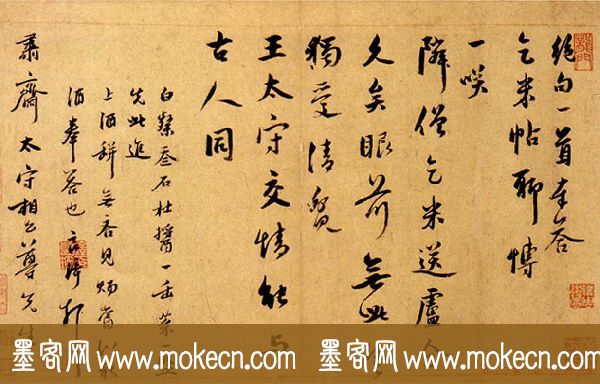 絕句一首奉荅
乞米帖聊博
一咲
隣僧乞米送盧仝
久矣眼前無此
獨受清
王太守交情能與
古人同
白粲叁石杜醬一缶柴一
先此進
上酒缾無吝見
酒奉荅也
肅齋太守相公尊兄先生
墨客网 www.mokecn.com 墨客网 www.mokecn.com